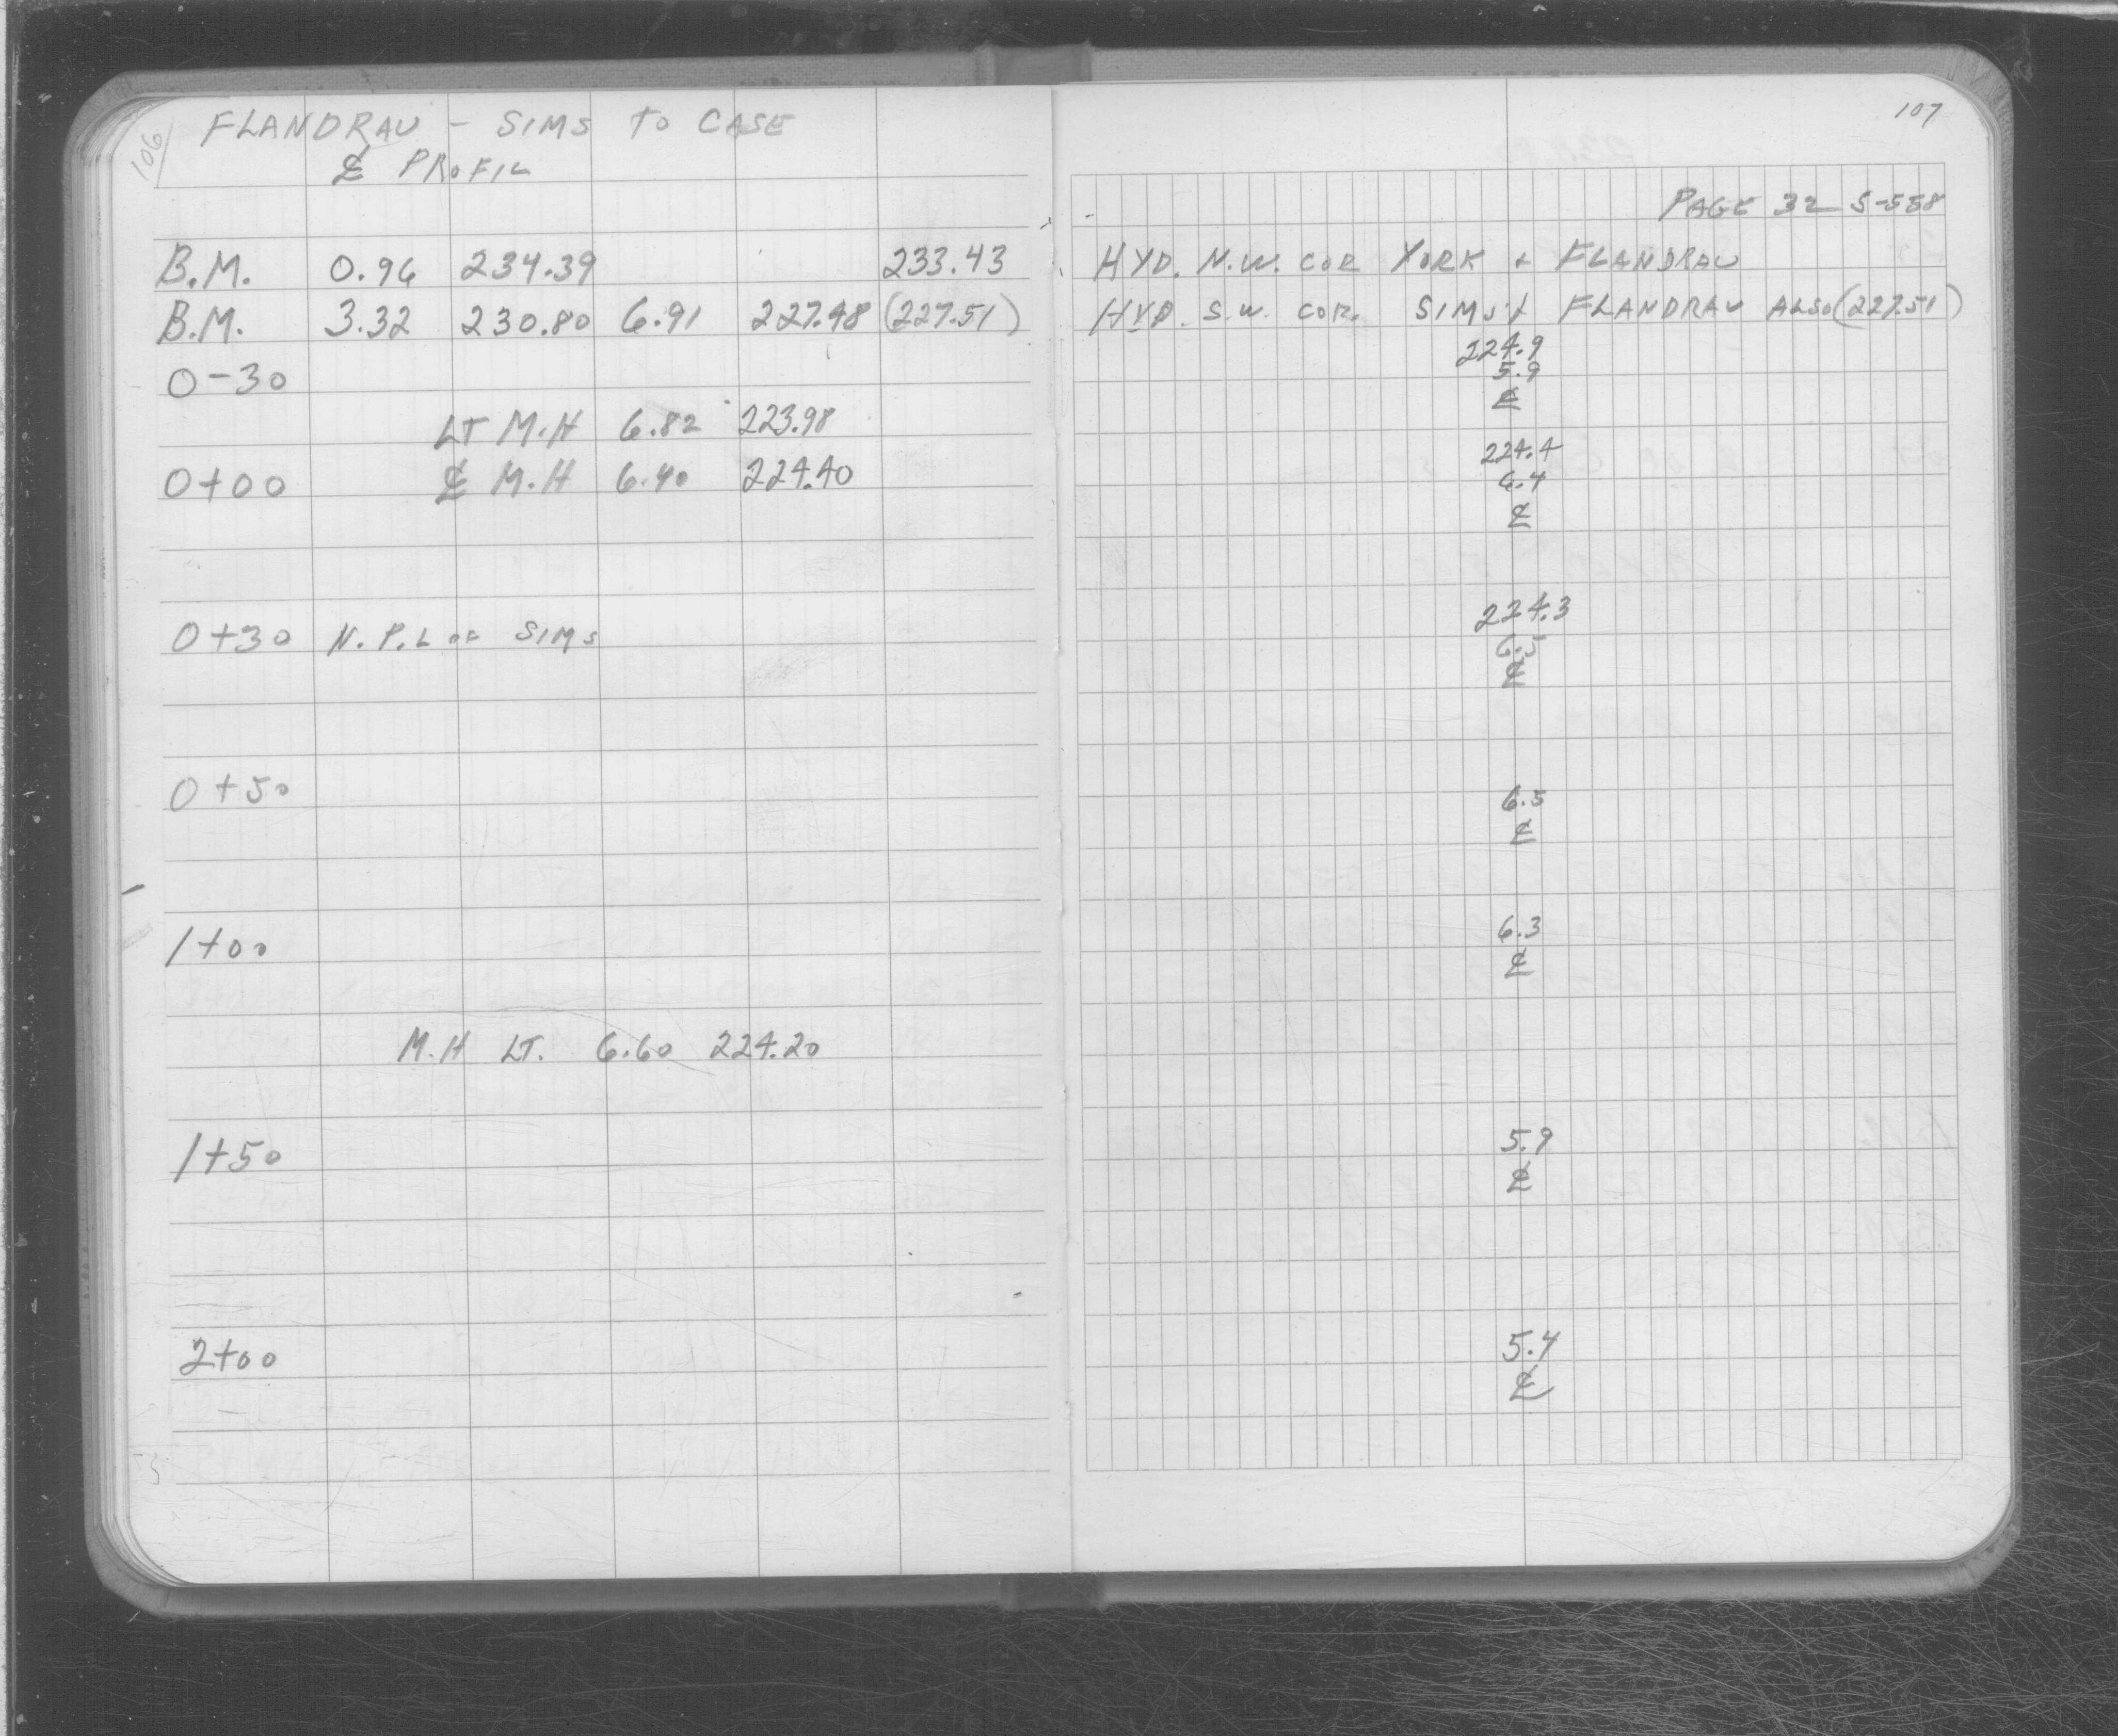 106
FLANDRAU - SIMS TO CASE
℄ PROFIL
B.M. 0.96 234.39 233.43
B.M. 3.32 230.80 6.91 227.48 (227.51)
0-30
LT M.H 6.82 223.98
0+00 ℄ M.H 6.40 224.40
0+30 N.P.L OF SIMS
0+50
1+00
M.H LT. 6.60 224.20
1+50
2+00
107
PAGE 32 S-558
HYD. N.W. COR YORK + FLANDRAU
HYD. S.W. COR. SIMS + FLANDRAU ALSO (227.51)
224.9
5.9
℄
224.4
6.4
℄
224.3
6.5
℄
6.5
℄
6.3
℄
5.9
℄
5.4
℄